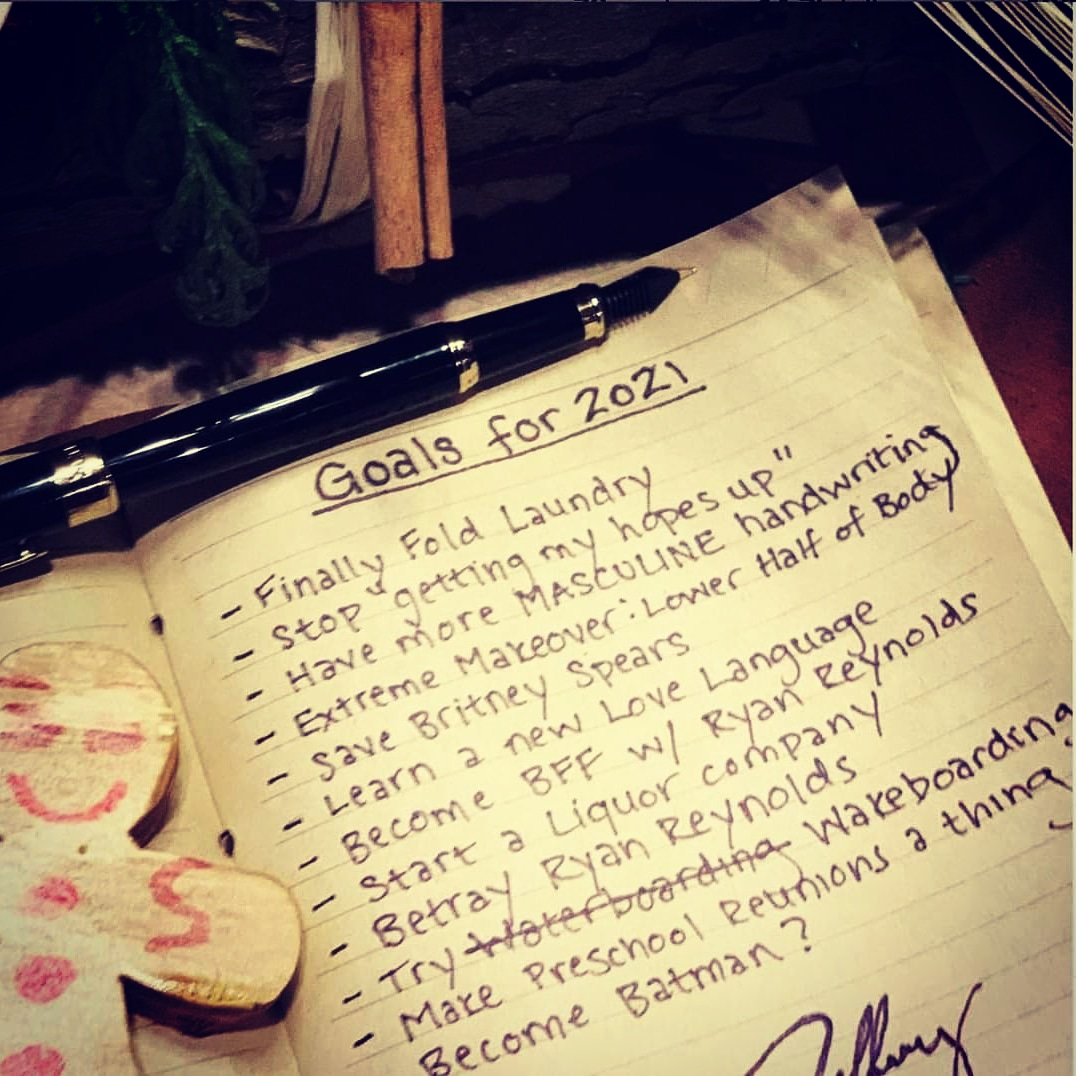 Goals for 2021
- Finally Fold Laundry
- Stop "getting my hopes up"
- Have more MASCULINE handwriting
- Extreme Makeover: Lower Half of Body
- Save Britney Spears
- Learn a new Love Language
- Become BFF w/ Ryan Reynolds
- Start a Liquor company
- Betray Ryan Reynolds
- Try Waterboarding Wakeboarding
- Make Preschool Reunions a thing
Become Batman?
S